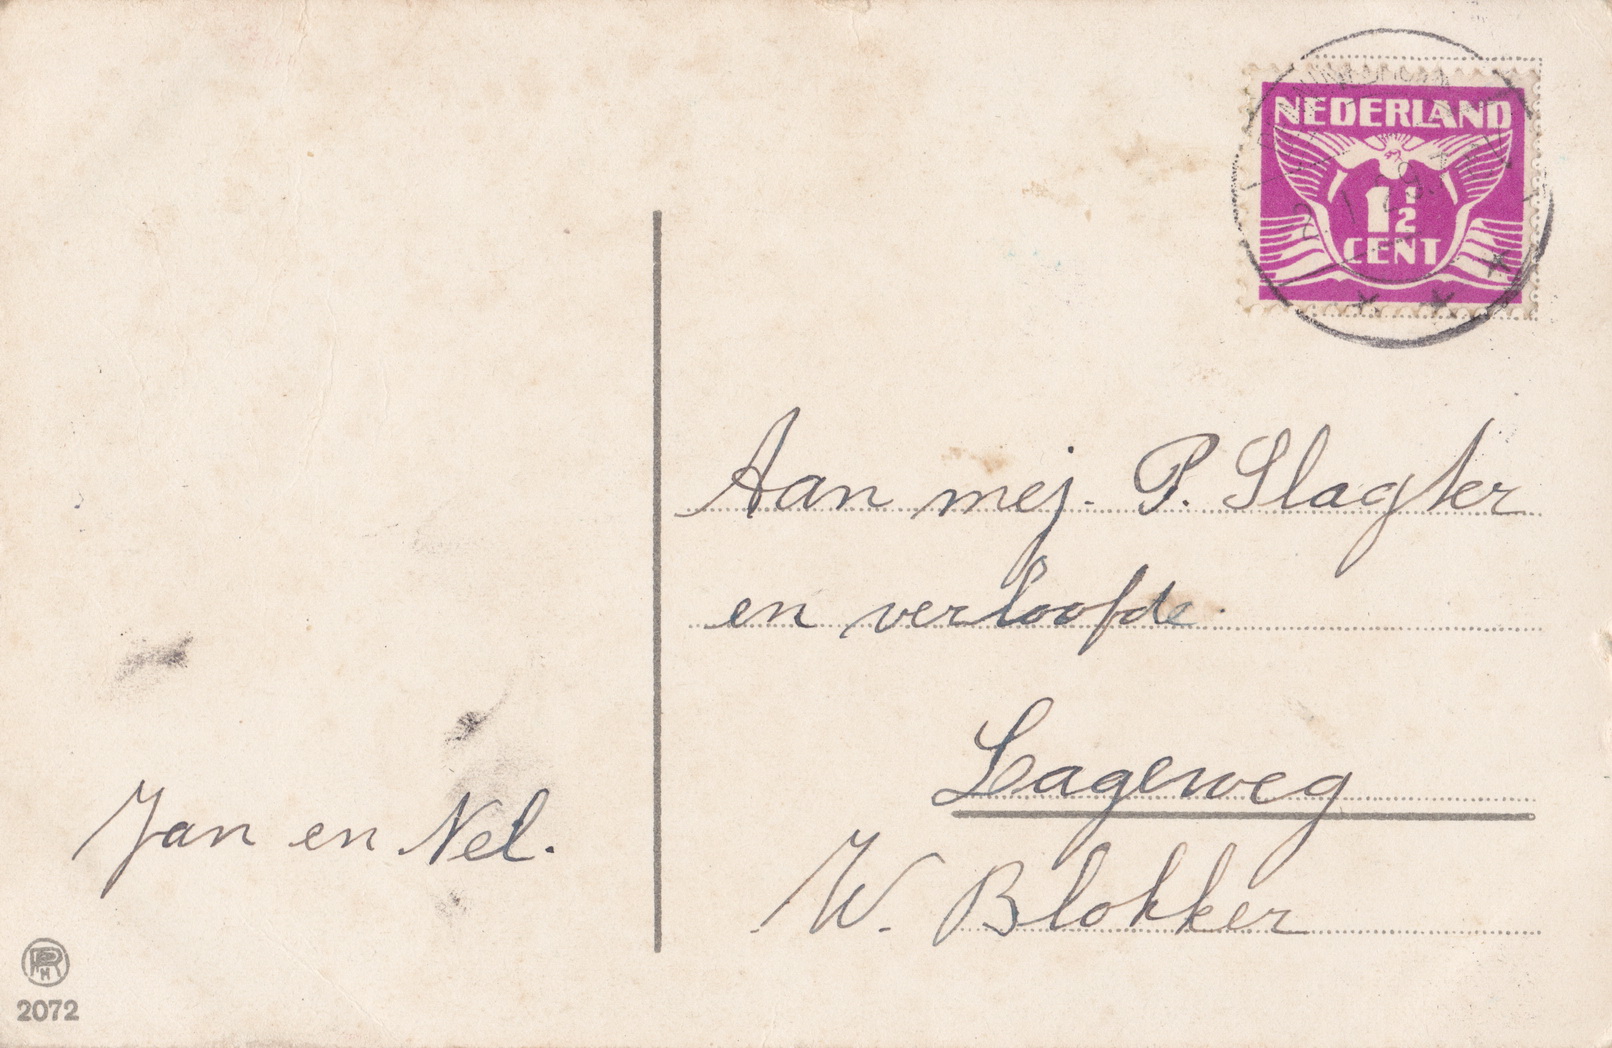 NEDERLAND
1½
CENT
Aan mej. P. Slagter
en verloofde.
Lageweg
W. Blokker
Jan en Nel.
2072